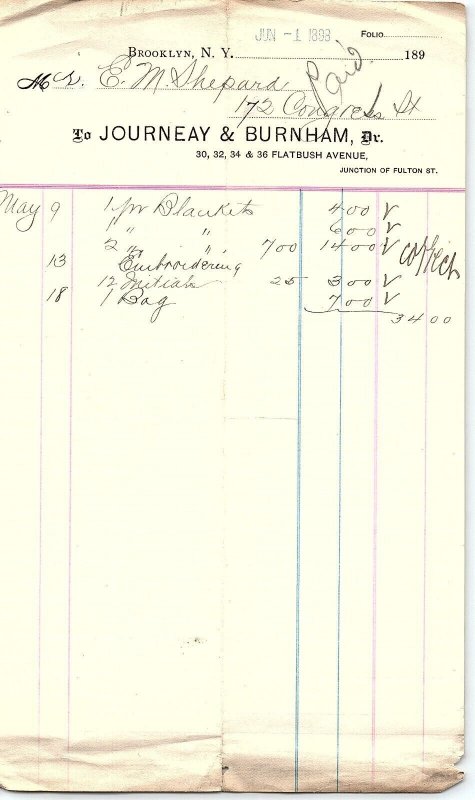 JUN -1 1898 Folio
Brooklyn, N. Y. 189
Mrs. E. M Shepard Paid
172 Congress St
To JOURNEAY & BURNHAM, Dr.
30, 32, 34 & 36 FLATBUSH AVENUE,
JUNCTION OF FULTON ST.
May 9 1 pr Blankets 4 00 √
1 " " 6 00 √
2 " " 7 00 14 00 √ correct
13 Embroidering
12 Initials 25 3 00 √
18 1 Bag 7 00 √
34 00